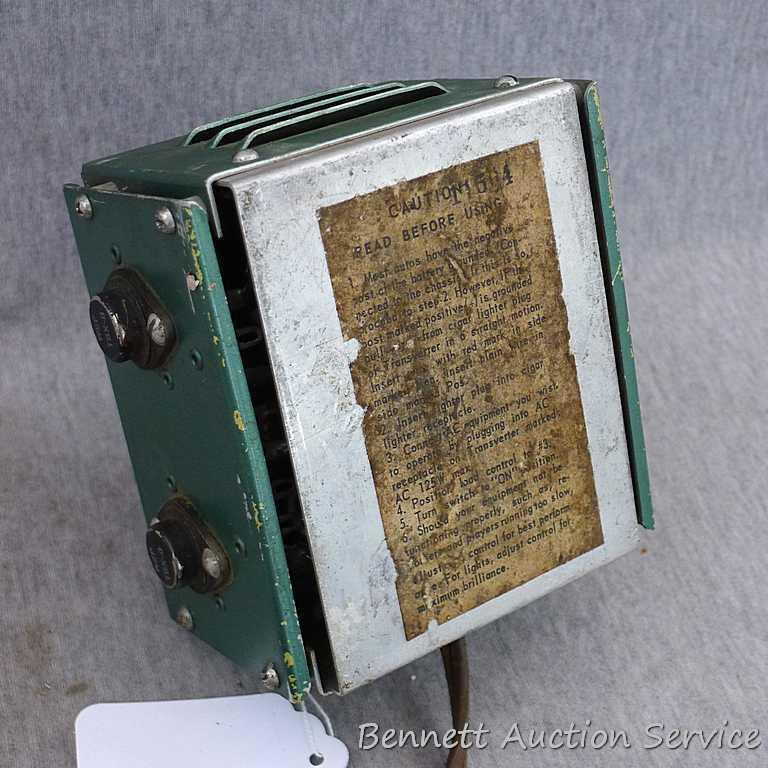 CAUTION!
READ BEFORE USING
1. Most autos have the negative
post of the battery grounded (Con-
nected to the chassis). If this is so,
proceed to step 2. However, if the
post marked positive is grounded
pull from cigar lighter plug
Transverter in a straight motion.
Insert with red mark in side
marked Insert plain in
side marked Pos.
2. Insert lighter plug into cigar
lighter receptacle.
3. Connect AC equipment you wish
to operate by plugging into AC
receptacle on Transverter marked:
AC, 125W max.
4. Position load control to #3.
5. Turn switch to "ON" position.
6. Should your equipment not be
functioning properly, such as, re-
corders and players running too slow,
adjust control for best perform-
ance. For lights, adjust control for
maximum brilliance.
Bennett Auction Service